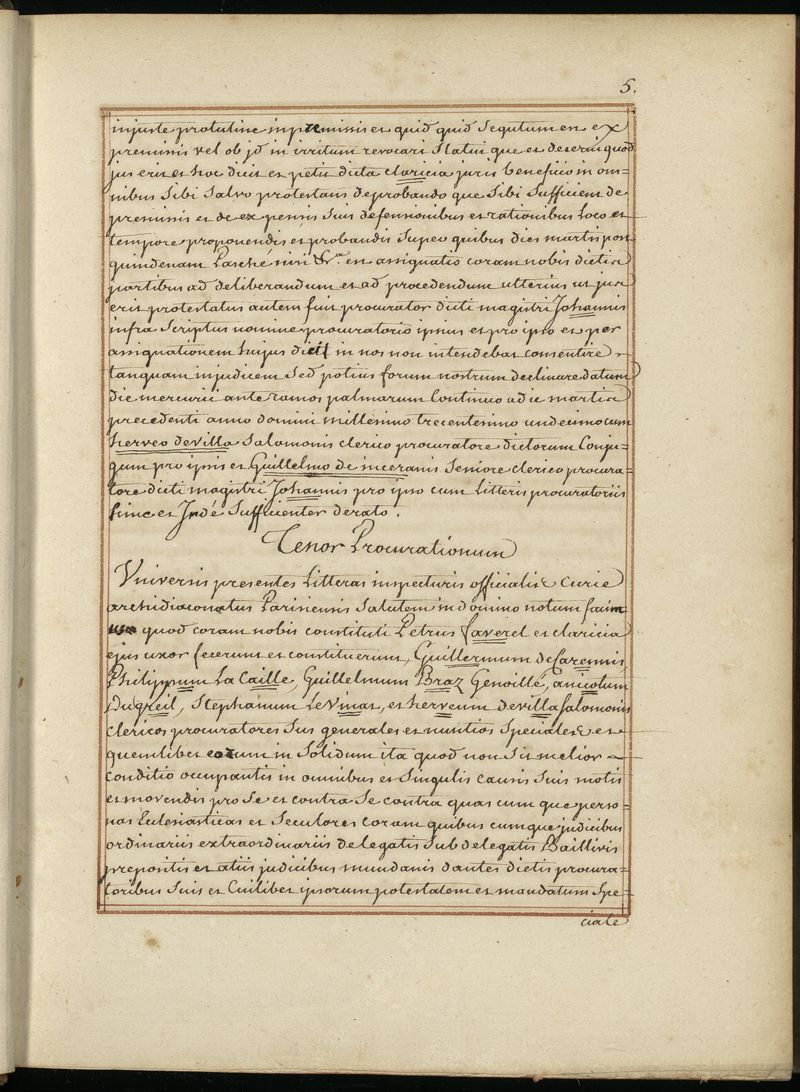 5.
injuste protutine inpremissis et quid quid Sequtum en ex
premissis vel ob id in irritum revocari Statui que et decerni quod
jus erit et hoc dicit et petit dicta claricia juris beneficio in om=
nibus Sibi Salvo protestans deprobando que Sibi Sufficient de
premissis et de expensis Suis defensionibus et rationibus Loco et
tempore proponendis et probandis Super quibus dies martis pos
quindenam Pasché en assignatio coram nobis dictis
partibus ad deliberandum et ad procedendum ulterius ut jus
erit protestatus autem fuit procurator dicti magistri Johannis
infra Scriptus nomine procuratorio ipsius et pro ipso et per
assignationem hujus in nos non intendebat consentire
tanquam injudicem Sed potius forum nostrum declinare datum
die mercurii ante ramos palmarum Continuo a die martis
precedenti anno domini millesimo trecentesimo undecimo cum
herveo devilla Salomonis clerico procuratore dictorum Conju=
gum pro ipsis et Guillelmo de inceranis Seniore clerico procura=
tore dicti magistri Johannis pro ipso cum Litteris procuratoriis
hinc et Indé Sufficienter derato.
Tenor Procurationum
Universis presentes Litteras inspecturis officialis Curie
archidiaconatus Parisiensis Salutem in domino notum faim
quod coram nobis constituti Petrus faverel et claricia
ejus uxor fecerunt et constituerunt, Guillermum de Carennis,
Philippum La Caille, Guillelmum Braz Genoillé, anicotum
Dugreil, Stephanum Levinat, et herveum devilla Salomonis
clericos procuratores Suos generales et nuntios Speciales et
quemlibet eorum in Solidum ita quod non Sit melior
conditio occupantis in omnibus et Singulis causis Suis motis
et movendis pro Se et contra Se contra quas cum que perso=
nas Eclesiasticas et Seculores coram quibus cumque judicibus
ordinariis extraordinariis delegatis Subdelegatis Baillivis
prepositis et aliis judicibus mundanis dantes dictis procura=
toribus Suis et Cuilibet ipsorum potestatem et mandatum Spe=
ciale